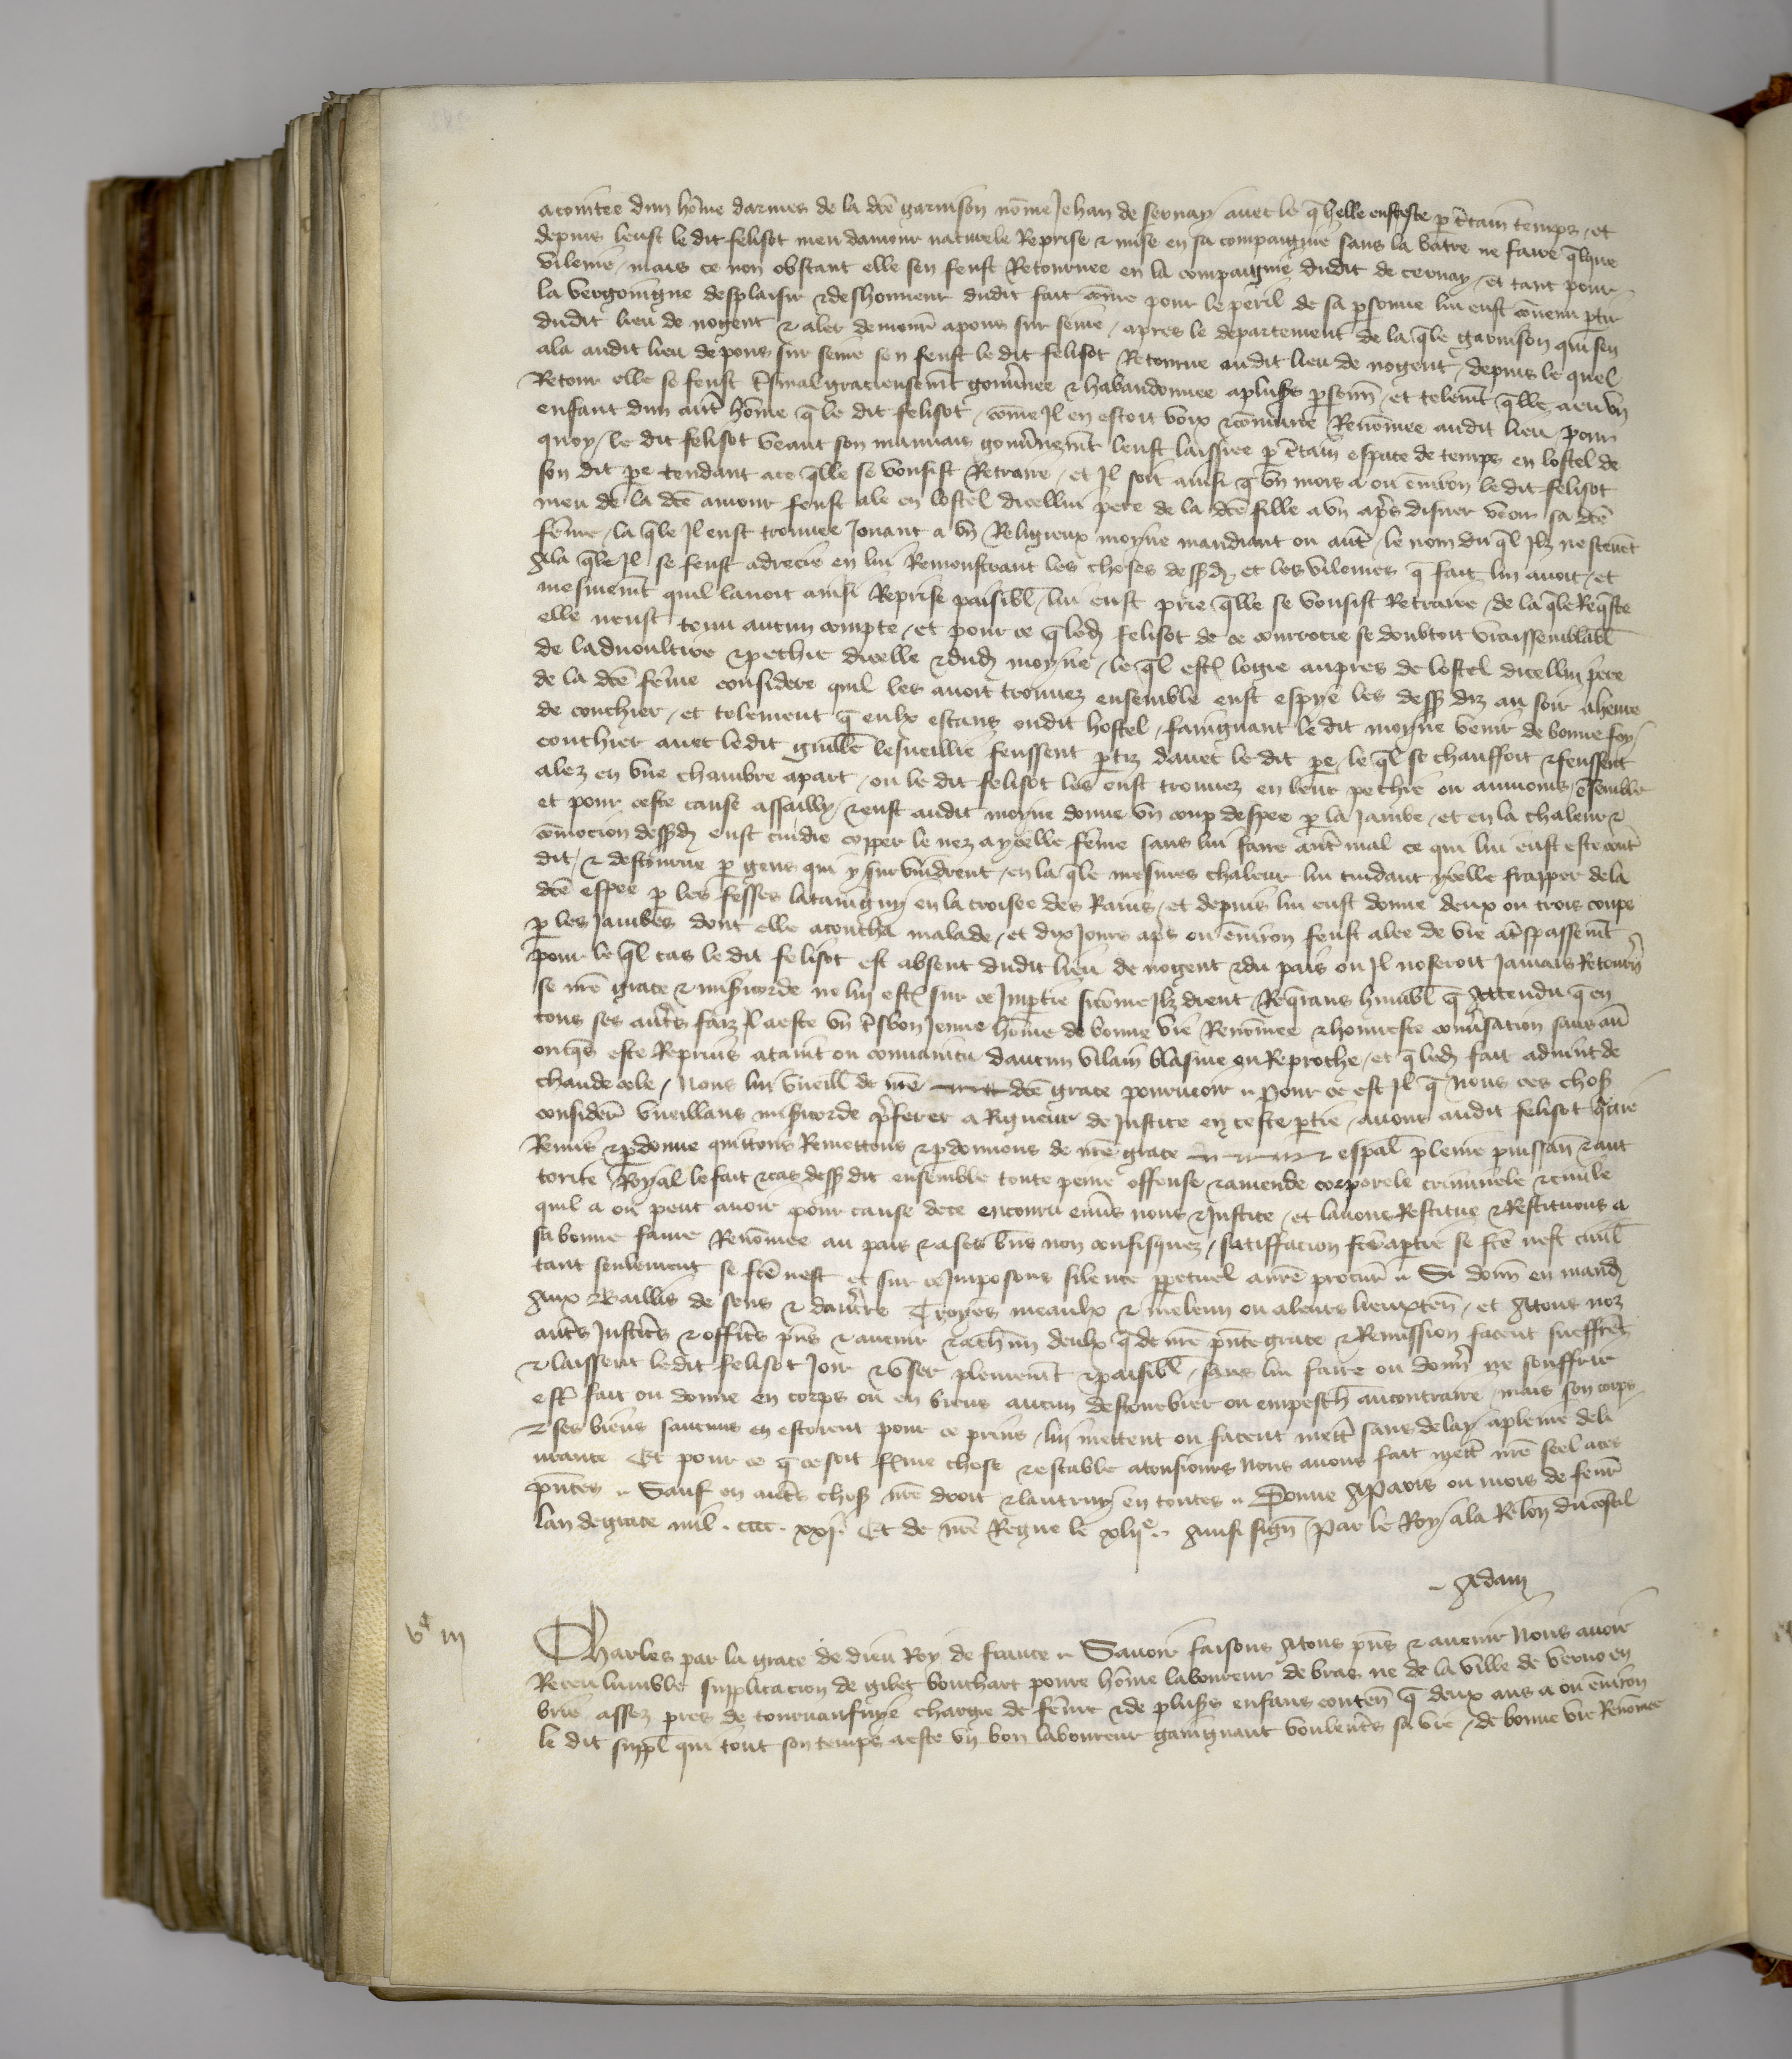 acointee dun hōme darmes de la dcē garnison nōme Jehan de sernay auec le qͥl elle eust este ꝑ c̄tain temps / et
depuis leust le dit felisot meu damour naturele Reprise & mise en sa compaignie sans la batre ne faire q̄lque
vilenie / mais ce non obstant elle sen feust Retournee en la compaignie dudit de cernay / et tant pour
la vergoingne desplaisir & deshonneur dudit fait cōme pour le peril de sa ꝑsonne lui eust cōuenu ꝑtir
dudit lieu de nogent & aler demour̄ a pons sur seine / apres le departement de la q̄le garnison qui sen
ala audit lieu de pons sur seine sen feust le dit felisot Retourne audit lieu de nogent / depuis le quel
Retour elle se feust t̄smal gracieusemt̄ gouūnee & habandonnee a plus̄s ꝑsonn̄ / et telemt̄ q̄lle a eu vn
enfant dun aut̄ hōme q̄ le dit felisot / cōme Jl en estoit voix & cōmune Renōmee audit lieu pour
quoy / le dit felisot veant son mauuais gouūnemt̄ leust laissiee ꝑ c̄tain espace de temps en lostel de
son dit ꝑe tendant a ce q̄lle se voulsist Retraire / et Jl soit ainsi q̄ vn mois a ou enuiron le dit felisot
meu de la dcē amour feust ale en lostel dicellui pere de la dcē fille a vn ap̄s disner veoir sa dcē
fēme / la q̄le Jl eust trouuee Jouant a vn Religieux moyne mandiant ou aut̄ / le nom du q̄l Jlz ne sceuēt
A la q̄le Jl se feust adrecie en lui Remonstrant les choses dessꝰd̄ et les vilenies q̄ fait lui auoit / et
mesmemt̄ quil lauoit ainsi Reprise paisibl̄ / lui eust prie q̄lle se voulsist Retraire / de la q̄le Req̄ste
elle neust tenu aucun compte / et pour ce q̄ led̄ felisot de ce courrocie se doubtoit vraissemblabl̄
de laduoultire & pechie dicelle & dud̄ moyne / le q̄l est̄ logie aupres de lostel dicellui pere
de la dcē fēme considere quil les auoit trouuez ensemble eust espye les dessꝰ diz au soir a heure
de couchier / et telement q̄ eulx estans oudit hostel / faingnant le dit moyne venir de bonne foy
couchier auec le dit guill̄e lescuillie feussent ꝑtiz dauec le dit ꝑe / le q̄l se chauffoit & feussent
alez en vne chambre apart / ou le dit felisot les eust trouuez en leur pechie ou aumoins ēsemble
et pour ceste cause assailly / & eust audit moyne donne vn coup despee ꝑ la Jambe / et en la chaleur &
cōmocion dessꝰd̄ eust cuidie copper le nez a ycelle fēme sans lui faire aut̄ mal ce qui lui eust este cont̄
dit / & destourne ꝑ gens qui y suruindrent / en la q̄le mesmes chaleur lui cuidant ycelle frapper de la
dcē espee ꝑ les fesses lataingny en la croisee des Rains / et depuis lui eust donne deux ou trois coups
ꝑ les Jambes dont elle acoucha malade / et dix Jours ap̄s ou enuiron feust alee de vie a t̄spassemt̄
pour le q̄l cas le dit felisot est absent dudit lieu de nogent & du pais ou Jl noseroit Jamais Retourn̄
se nr̄e grace & mis̄icorde ne luy est̄ sur ce Jmꝑtie sicōme Jlz dient Req̄rans humbl̄ q̄ Attendu q̄ en
tous ses aut̄s faiz Jl a este vn t̄sbon Jenne hōme de bonne vie Renōmee & honneste conūsacion sans au̅
oncq̄s este Reprins ataint ou conuaincu daucun vilain blasme ou Reproche / et q̄ led̄ fait aduint de
chaude cole / Nous lui vueill̄ de nr̄e dcē grace pourueoir .. Pour ce est Jl q̄ Nous ces chos̄
consider̄ vueillans mis̄icorde p̄ferer a Rigueur de Justice en ceste ꝑtie / auons audit felisot q̄icte
Remis & ꝑdonne quittons Remettons & ꝑdonnons de nr̄e grace espal̄ pleine puissan̄ & auc
torite Royal le fait & cas dessꝰ dit ensemble toute peine offense & amende corporele criminele & ciuile
quil a ou peut auoir pour cause de ce encouru enuers nous & Justice / et lauons Restitue & Restituons a
sa bonne fame Renōmee au pais & a ses biēs non confisquez / satiffacion fcē a ꝑtie se fcē nest ciuil̄
tant seulement se fcē nest et sur ce Jmposons silence ꝑpetuel a nr̄e procur̄ .. Si donn̄ en mand̄
Aux Baillis de sens & dauc̄rre Troyes meaulx & meleun ou a leurs lieuxten̄ / et A tous noz
aut̄s Justic̄s & offic̄s pn̄s & auenir & a ch̄un deulx q̄ de nr̄e pn̄te grace & Remission facent sueffrēt
& laissent le dit felisot Joir & vser plenemt̄ & paisibl̄ / sans lui faire ou donn̄ ne souffrir
est̄ fait ou donne en corps ou en biens aucun destourbier ou empesch̄ au contraire / mais son corps
& ses biens saucuns en estoient pour ce prins / lui mettent ou facent mett̄ sans delay a pleine deli
urance Et pour ce q̄ ce soit ferme chose & estable a tousiours Nous auons fait mett̄ nr̄e seel a ces
pn̄tes .. Sauf en aut̄s chos̄ nr̄e droit & lautruy en toutes .. Donne A Paris ou mois de feur̄
lan de grace mil . cccc . xxj . Et de nr̄e Regne le xlijᵉ .. Ainsi sign̄ Par le Roy a la Relōn du cōseil
.. Adam
vᶜ iij
Charles par la grace de dieu Roy de france .. Sauoir faisons A tous pn̄s & auenir Nous auoir
Receu lumble supplicacion de gilet bouchart poure hōme laboureur de bras ne de la ville de verno en
brie assez pres de tournanfuye chargie de fēme & de plus̄s enfans conten̄ q̄ deux ans a ou enuiron
le dit suppl̄ qui tout son temps a este vn bon laboureur gaingnant voulent̄s sa vie / de bonne vie Renōmee